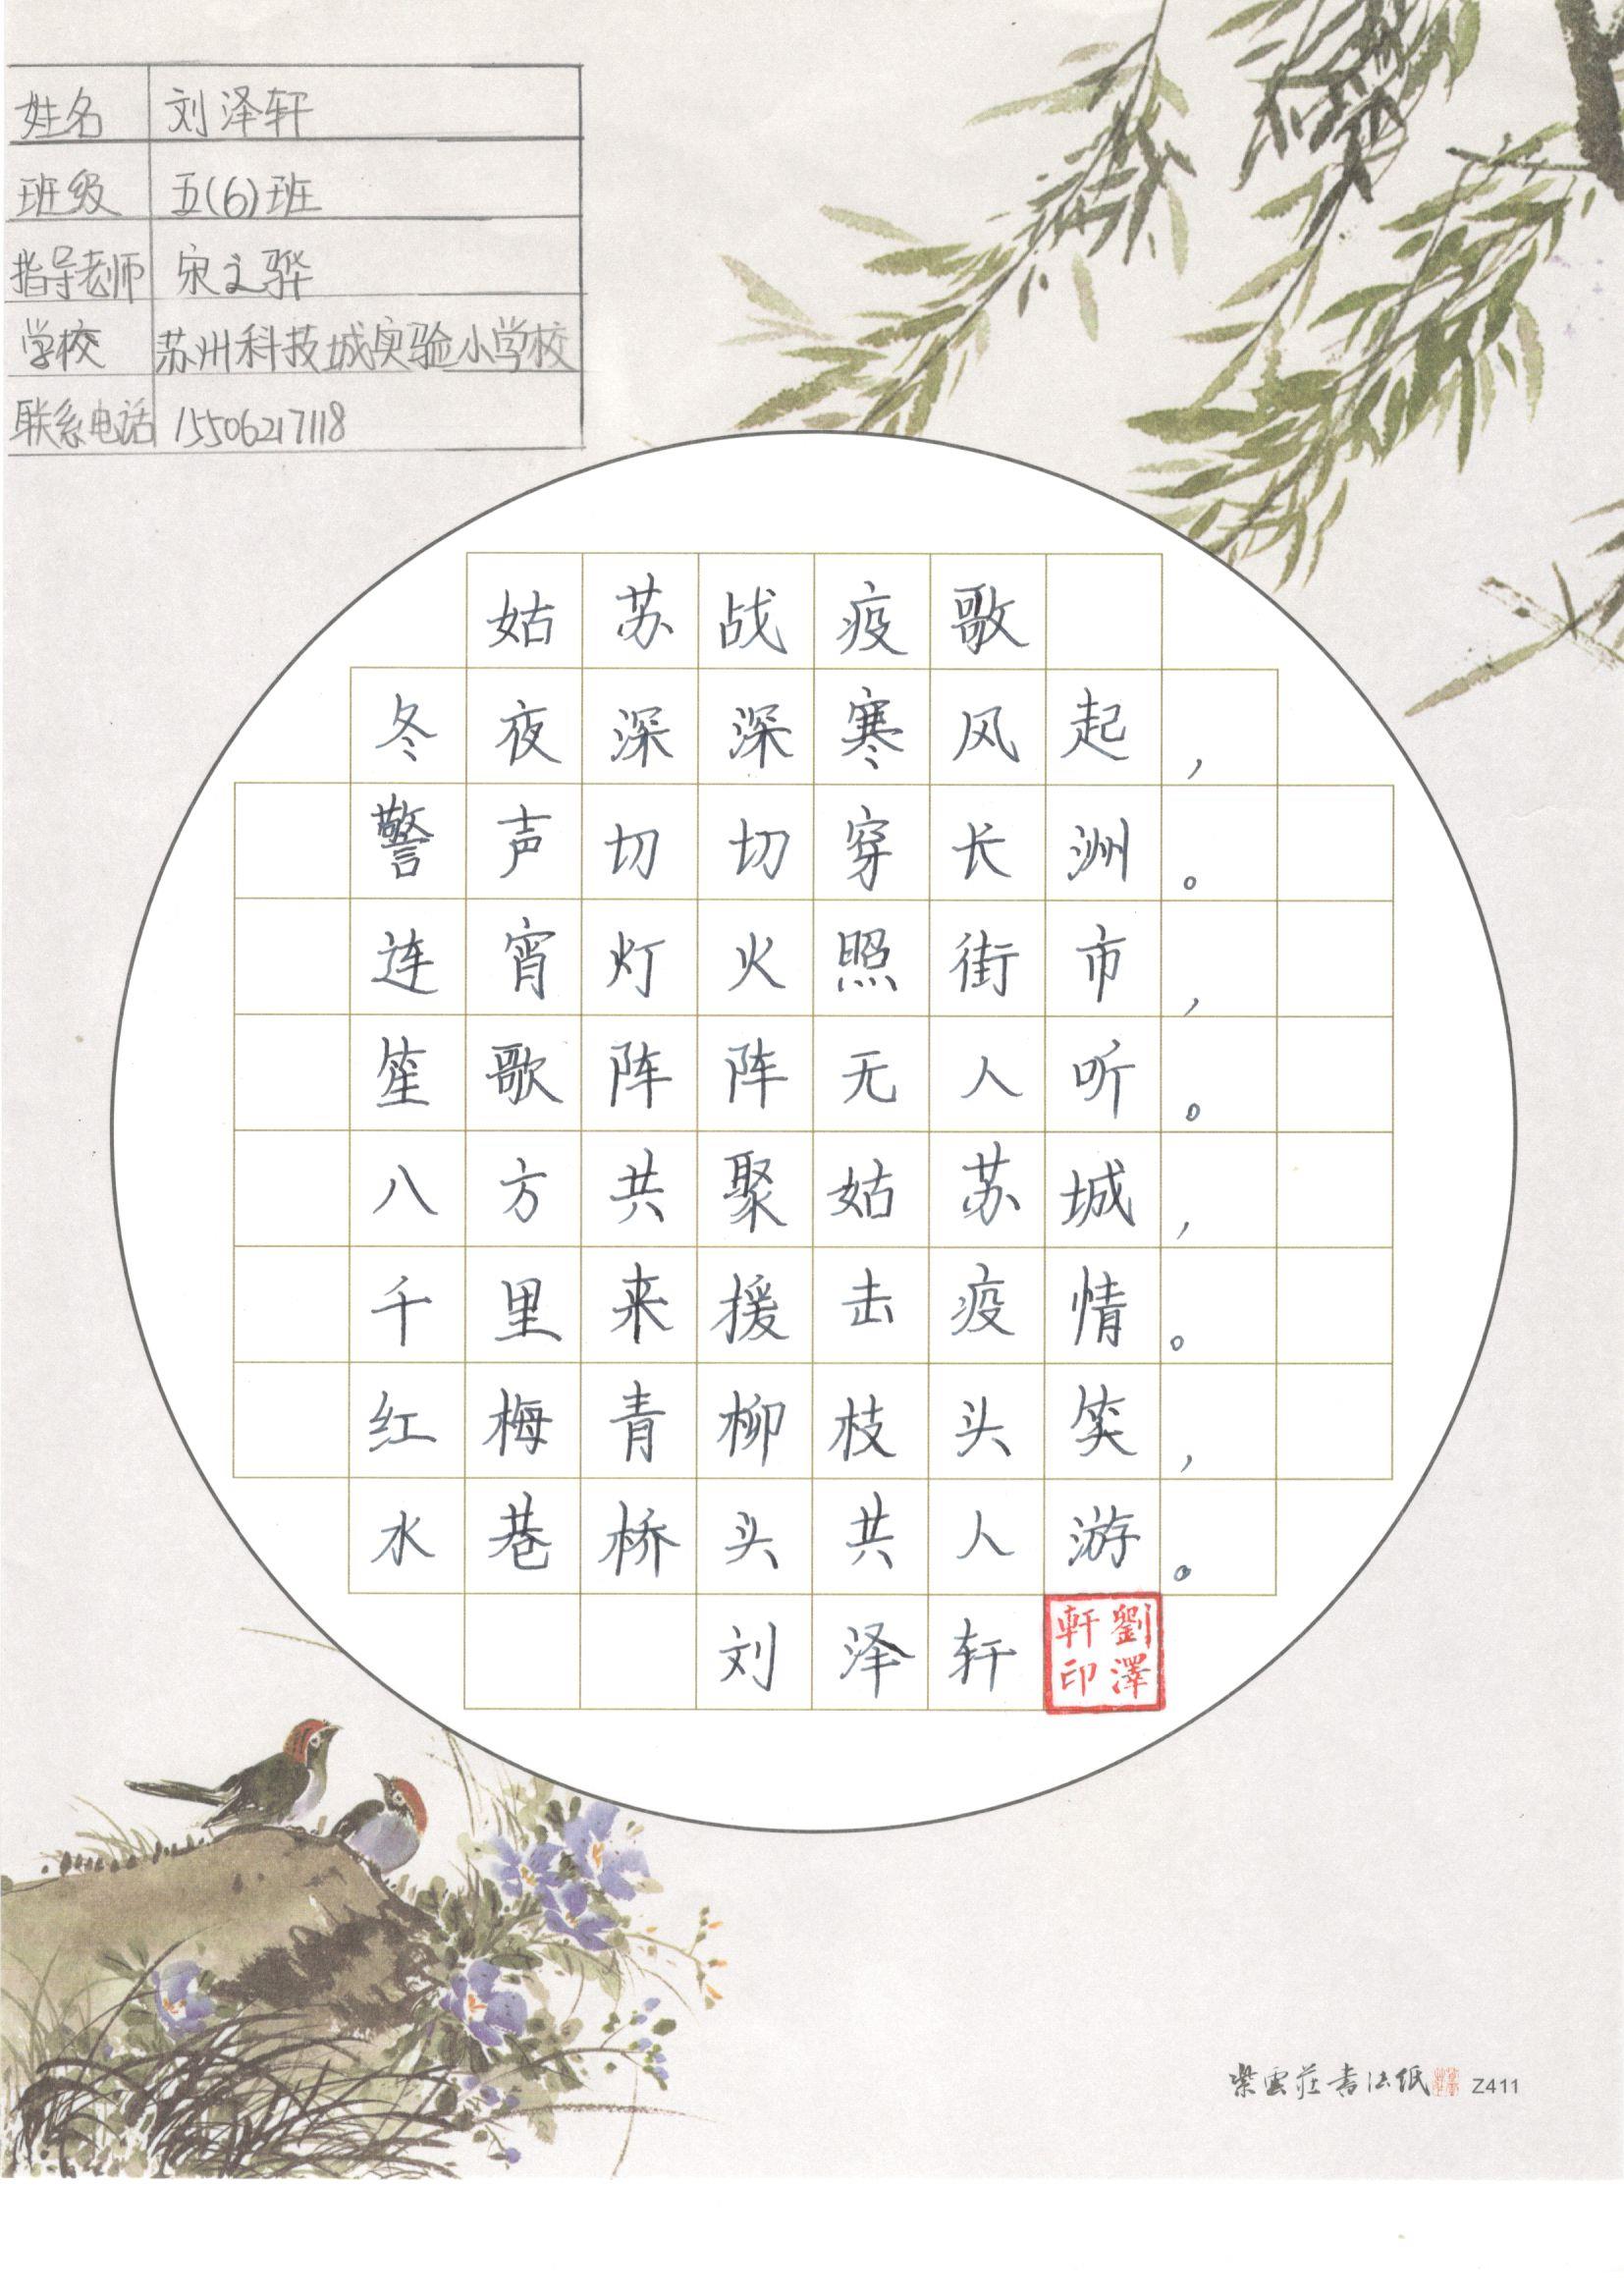 姓名 刘泽轩
班级 五(6)班
指导老师 宋文骅
学校 苏州科技城实验小学校
联系电话 15506217118
姑苏战疫歌
冬夜深深寒风起，
警声切切穿长洲。
连宵灯火照街市，
笙歌阵阵无人听。
八方共聚姑苏城，
千里来援击疫情。
红梅青柳枝头笑，
水巷桥头共人游。
刘泽轩
劉澤軒印
紫雲莊書法纸 Z411